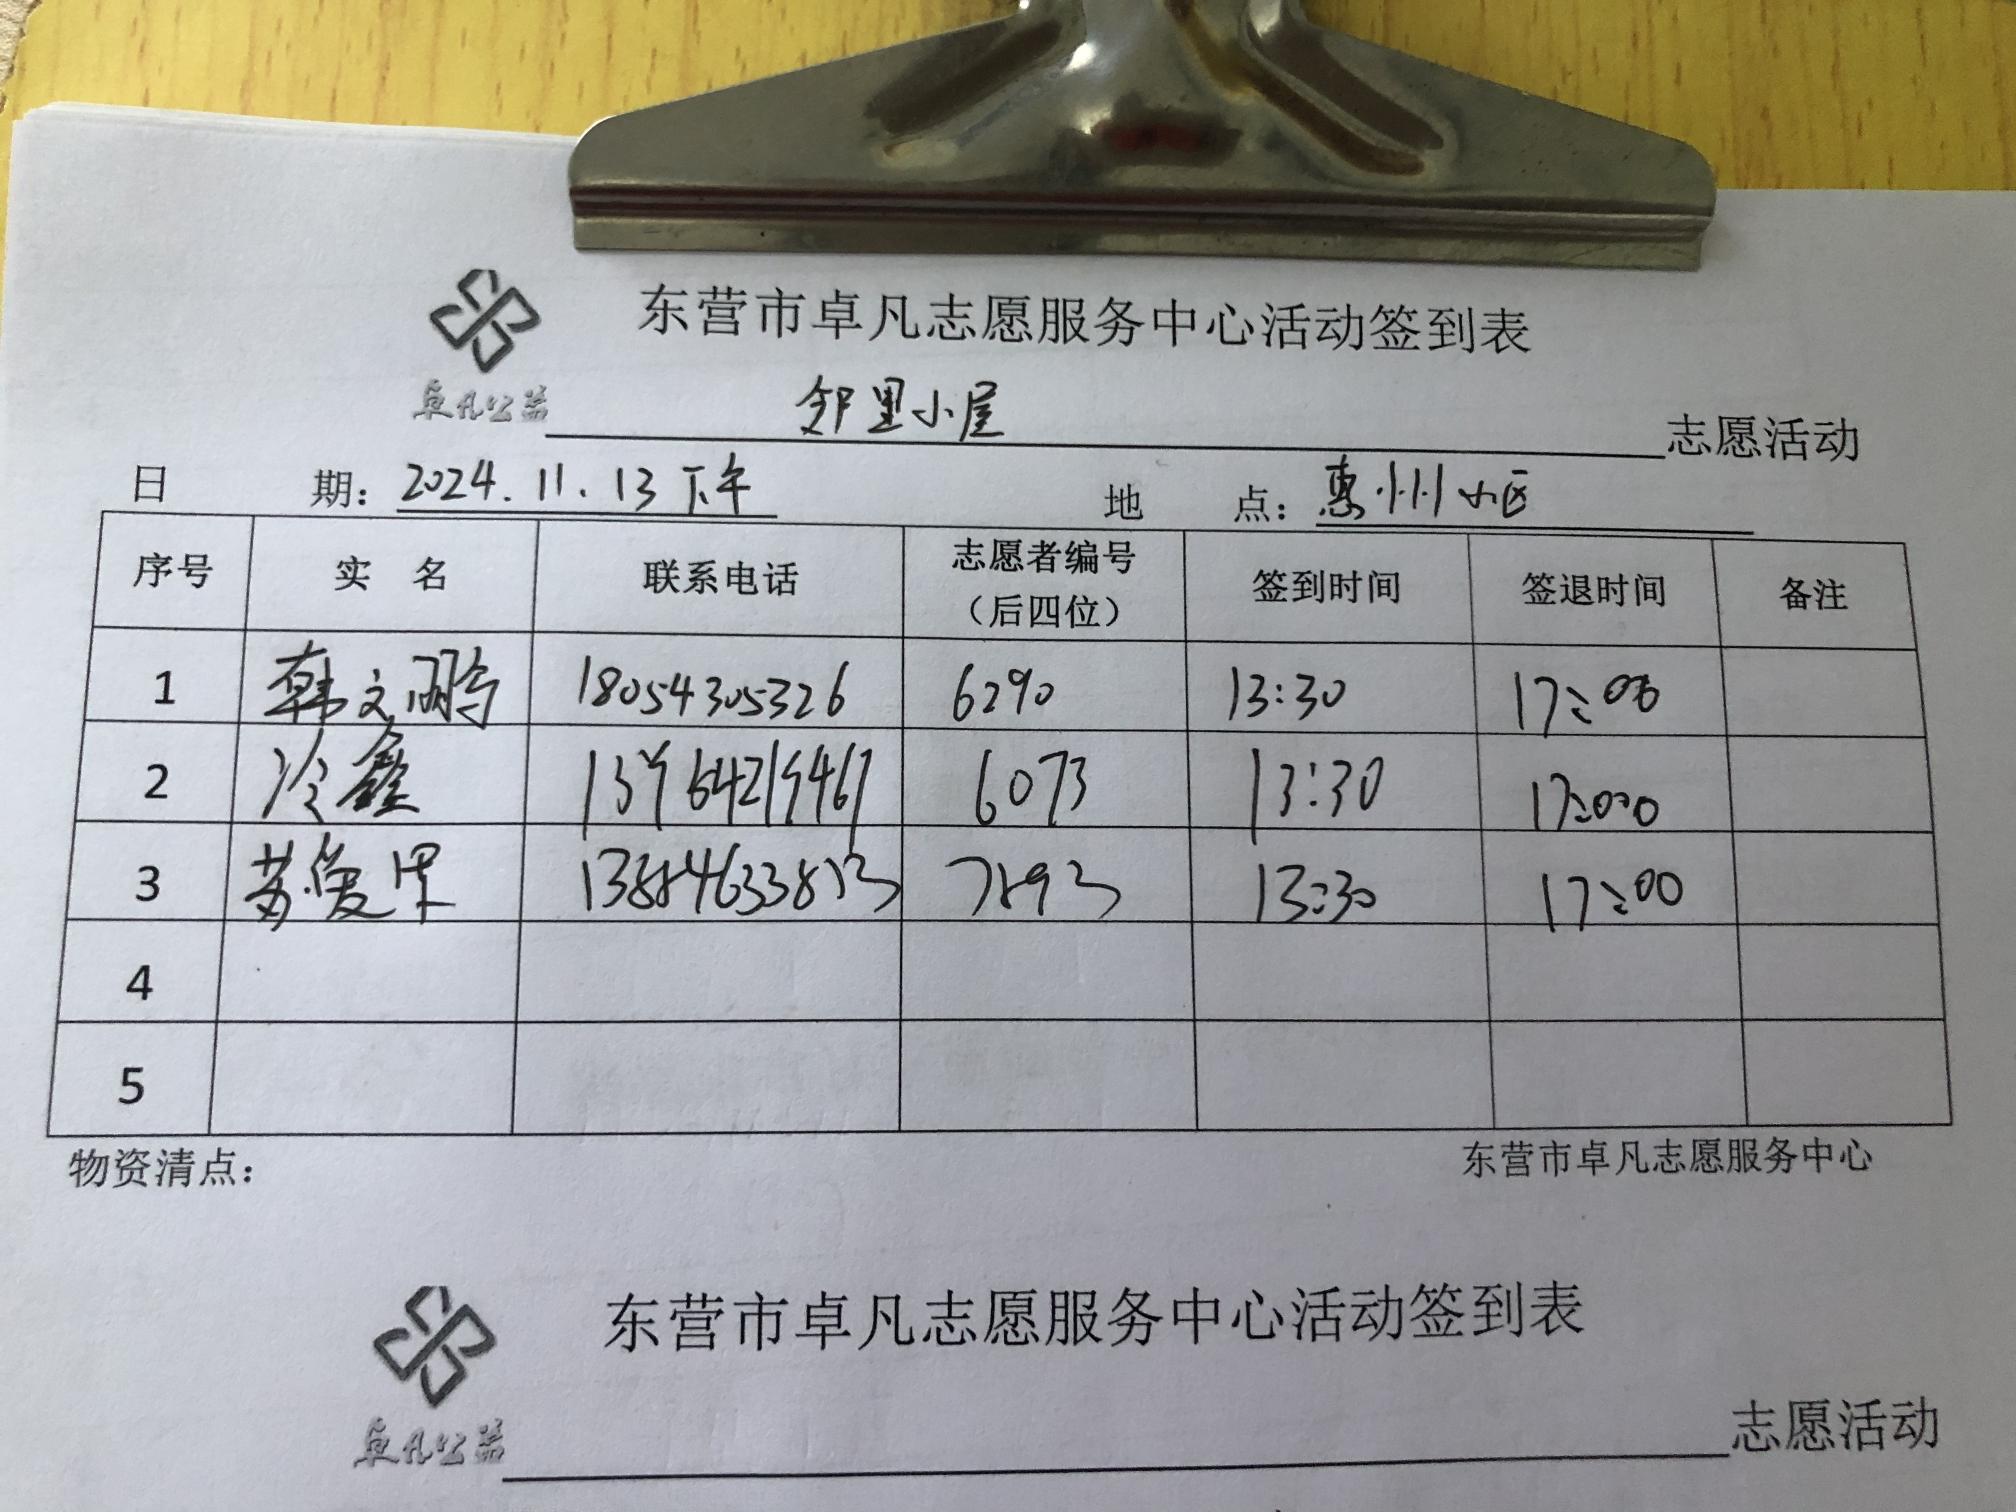 东营市卓凡志愿服务中心活动签到表
卓凡公益 邻里小屋 志愿活动
日 期：2024.11.13下午 地 点：惠州小区
序号 实 名 联系电话 志愿者编号（后四位） 签到时间 签退时间 备注
1 韩文鹏 18054305326 6290 13:30 17:00
2 冷鑫 6073 13:30 17:00
3 苏爱果 7893 13:30 17:00
4
5
物资清点： 东营市卓凡志愿服务中心
东营市卓凡志愿服务中心活动签到表
卓凡公益 志愿活动